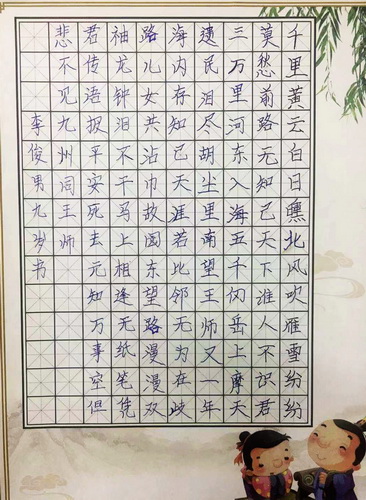 千里黄云白日曛北风吹雁雪纷纷
莫愁前路无知己天下谁人不识君
三万里河东入海五千仞岳上摩天
遗民泪尽胡尘里南望王师又一年
海内存知己天涯若比邻无为在歧
路儿女共沾巾故园东望路漫漫双
袖龙钟泪不干马上相逢无纸笔凭
君传语报平安死去元知万事空但
悲不见九州同王师
李俊男九岁书